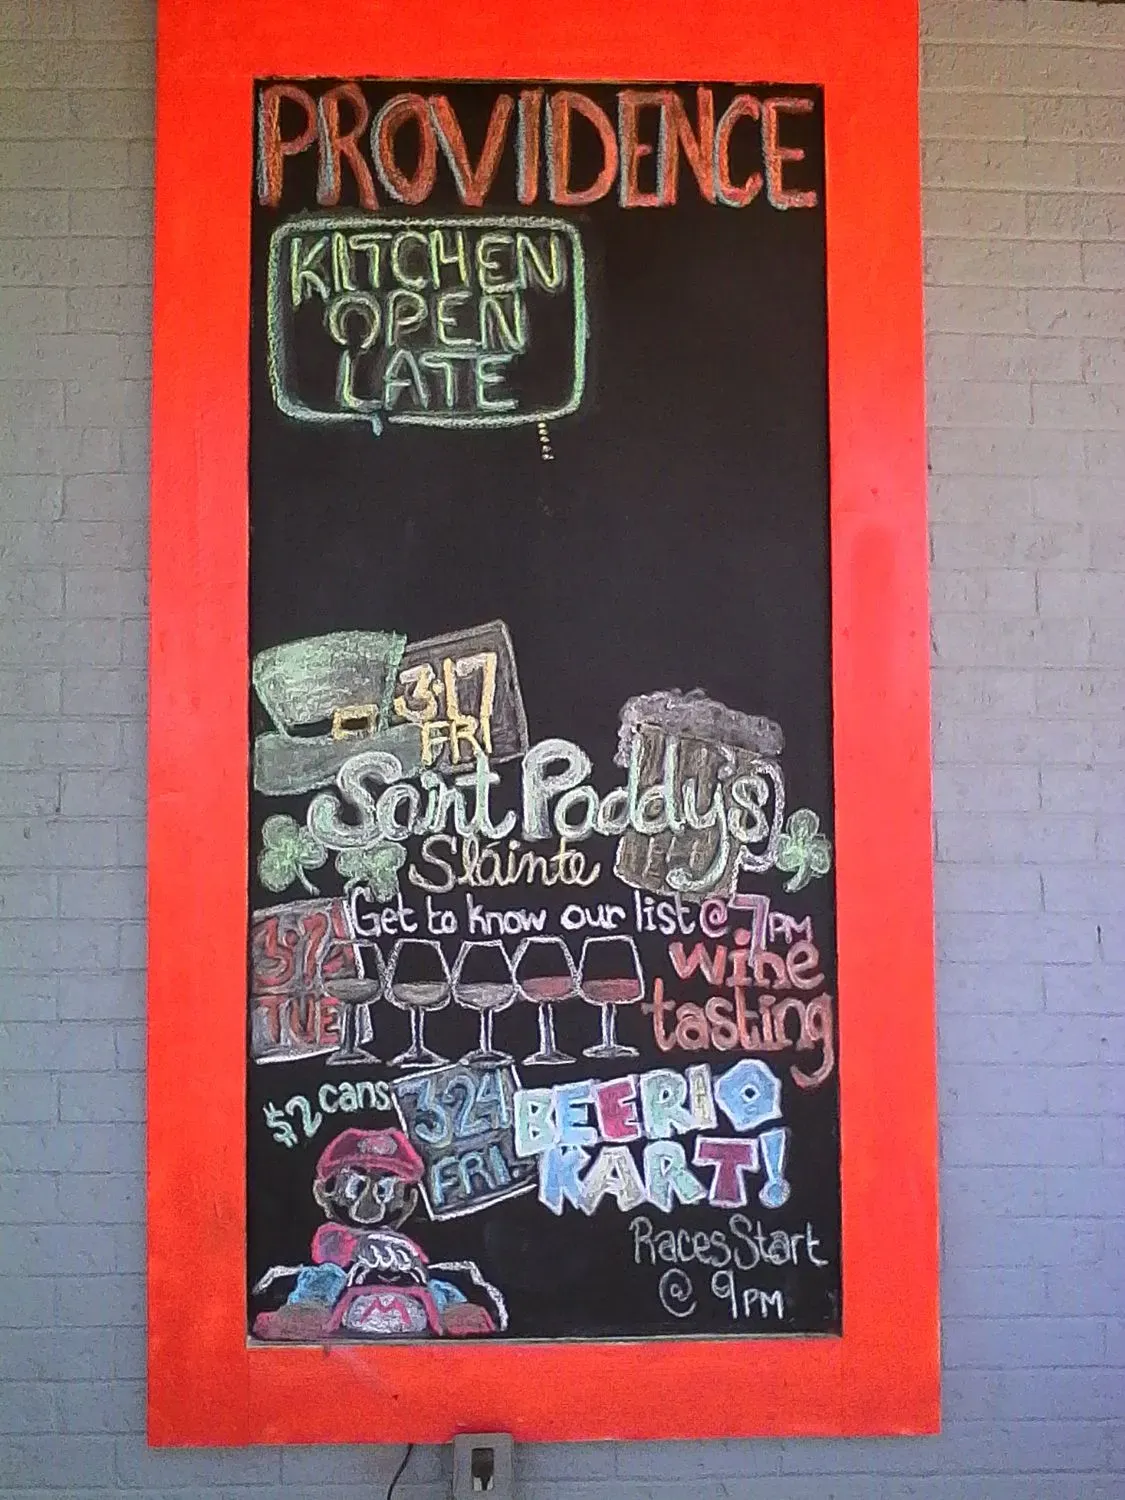 PROVIDENCE
KITCHEN
OPEN
LATE
3·17
FRI
Saint Paddy's
Sláinte
3·21
TUE
Get to know our list @ 7PM
wine
tasting
$2 cans
3·24
FRI.
BEERIO
KART!
Races Start
@ 9PM
M